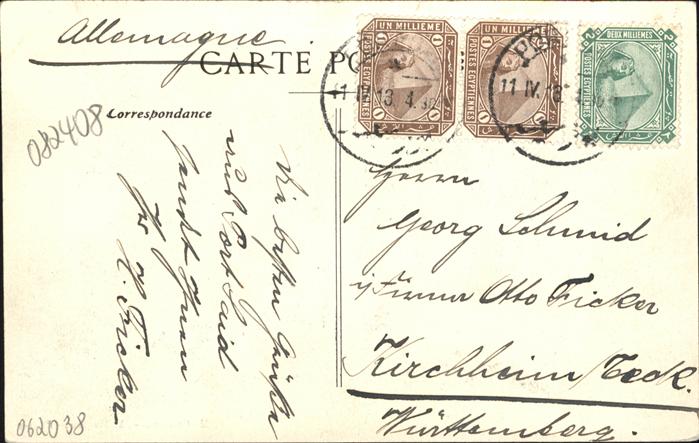 Allemagne.
CARTE PO
Correspondance
082408
062038
UN MILLIEME
POSTES EGYPTIENNES
1
1
UN MILLIEME
POSTES EGYPTIENNES
1
1
DEUX MILLIEMES
POSTES EGYPTIENNES
2
11 IV.13. 4.30
11 IV.13
Die besten Grüße
aus Port Said
sendet Ihnen
Ihr H. Ficker
Herrn
Georg Schmid
i/Firma Otto Ficker
Kirchheim Teck.
Württemberg.